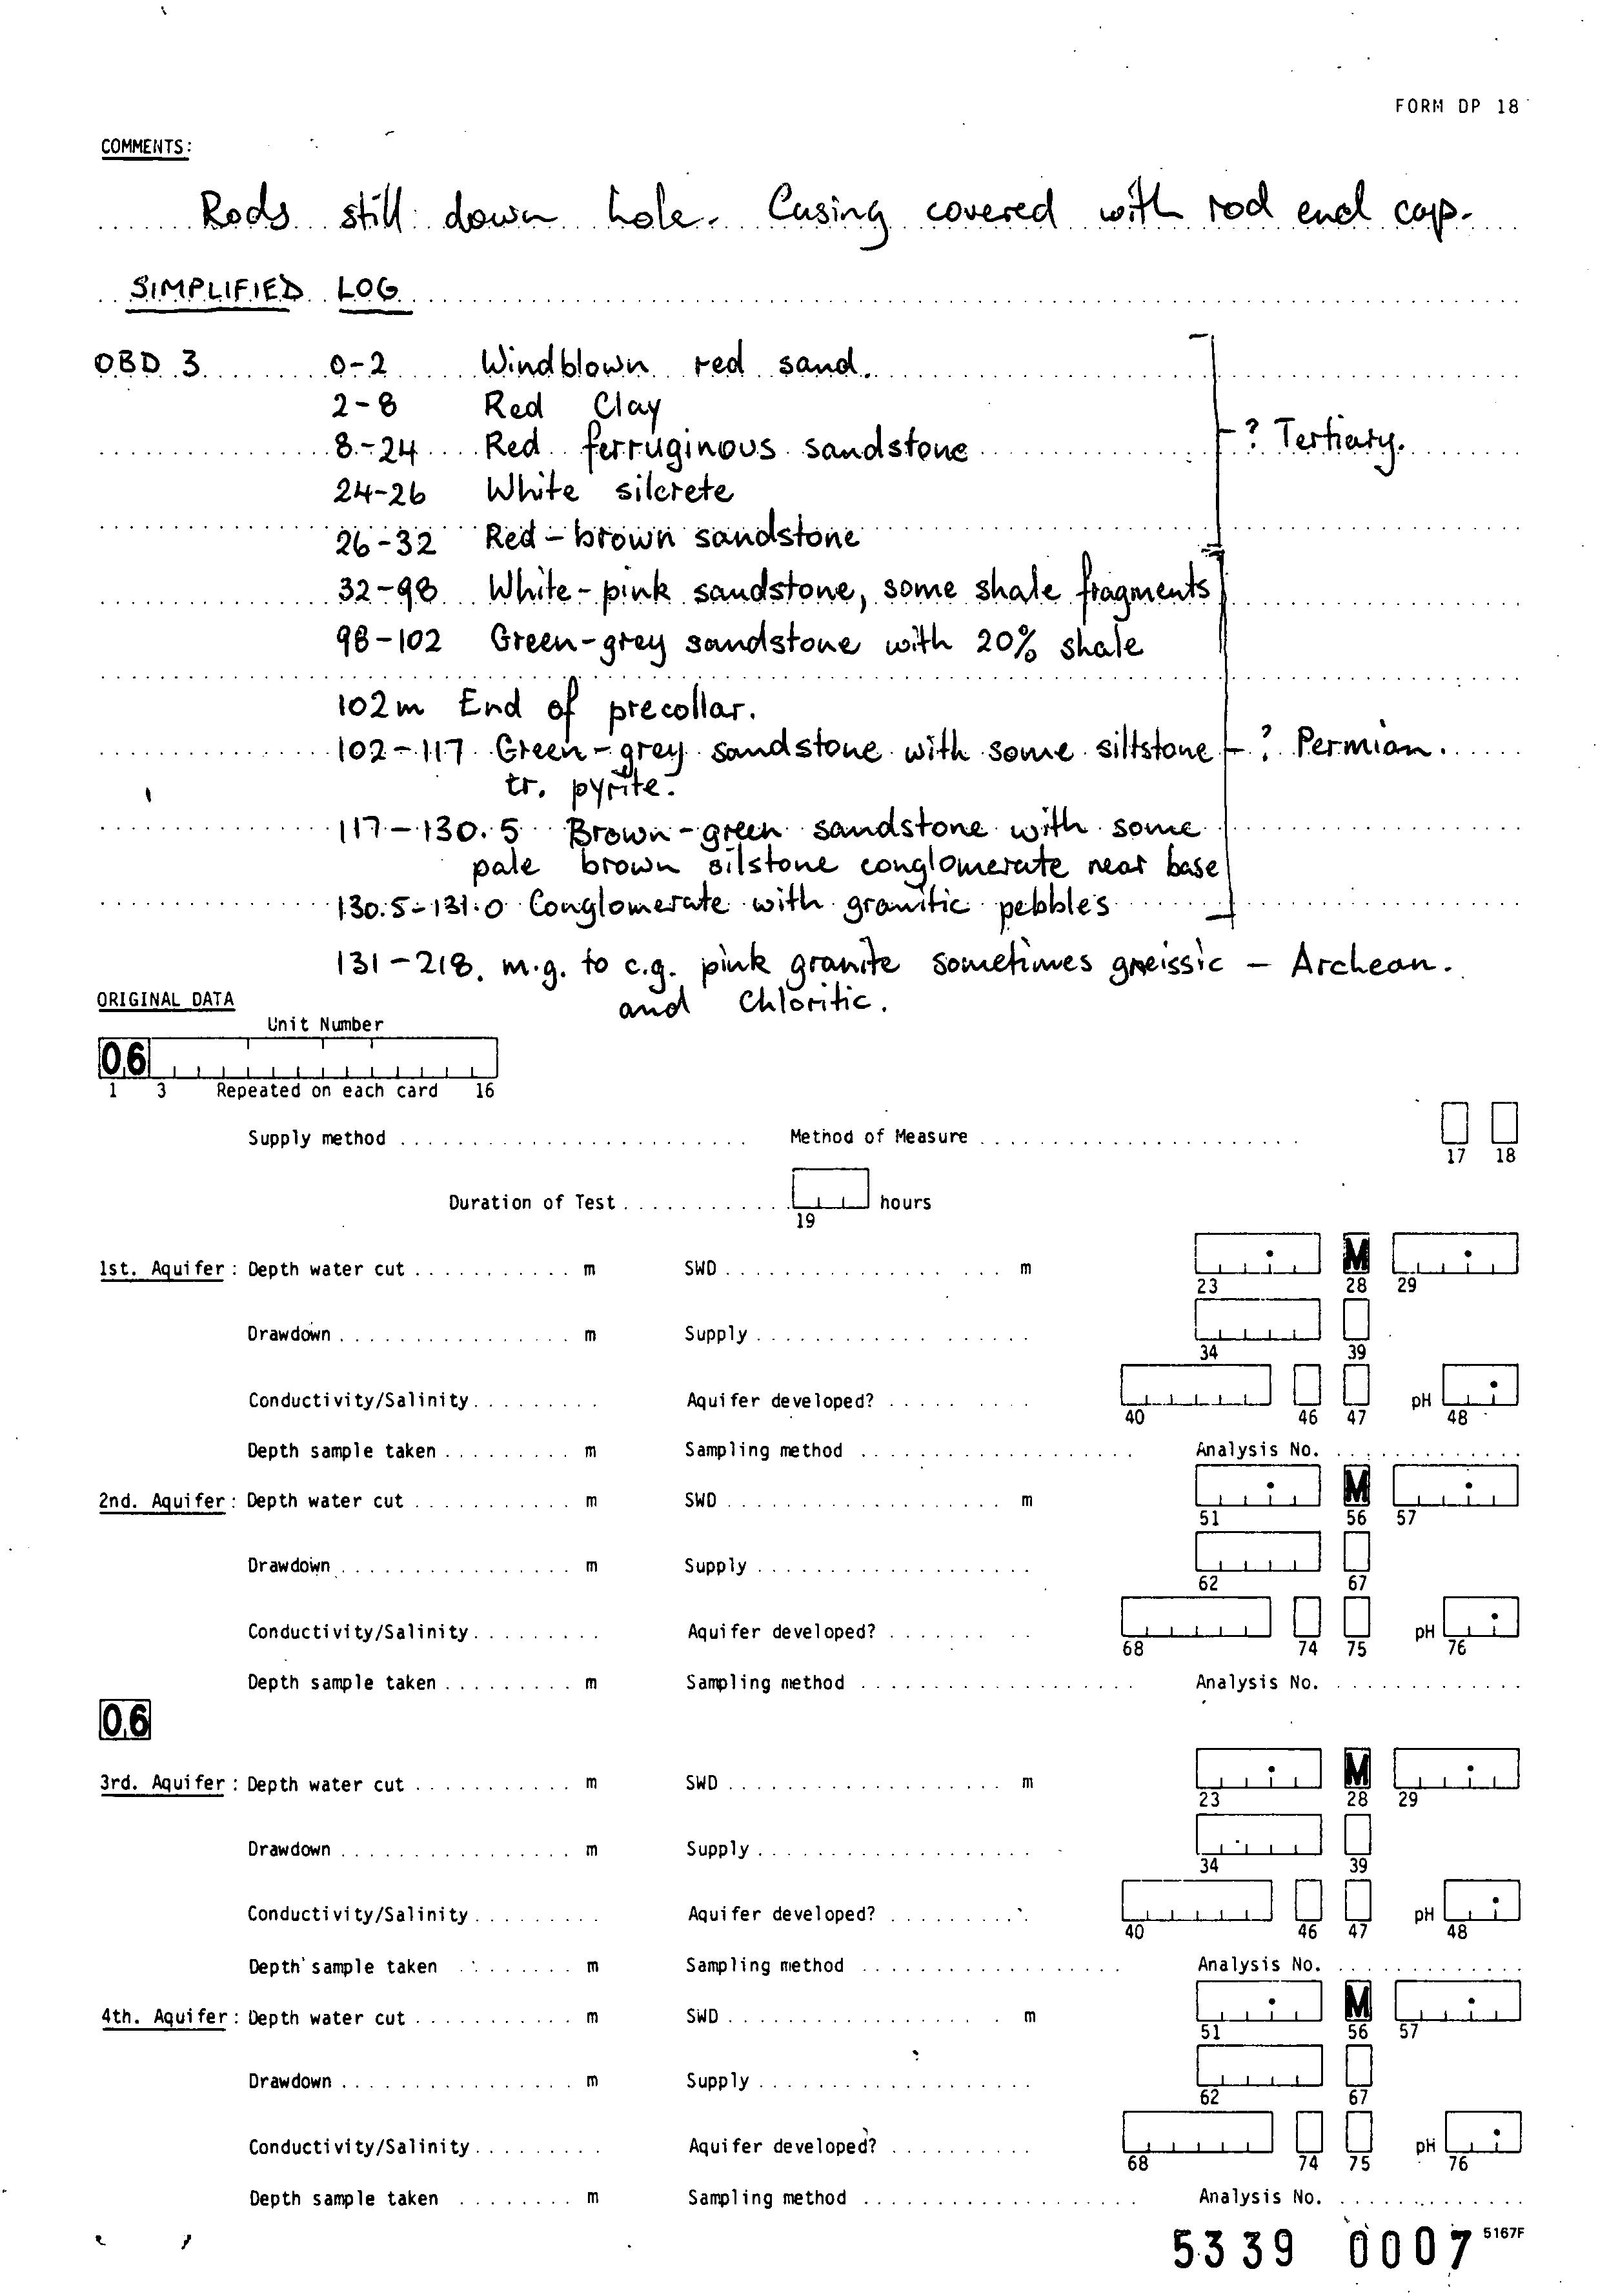 FORM DP 18
COMMENTS:
Rods still down hole. Casing covered with rod end cap.
SIMPLIFIED LOG
OBD 3 0-2 Windblown red sand.
2-8 Red Clay
8-24 Red ferruginous sandstone ? Tertiary.
24-26 White silcrete
26-32 Red-brown sandstone
32-98 White-pink sandstone, some shale fragments
98-102 Green-grey sandstone with 20% shale
102m End of precollar.
102-117 Green-grey sandstone with some siltstone ? Permian.
tr. pyrite.
117-130.5 Brown-green sandstone with some
pale brown silstone conglomerate near base
130.5-131.0 Conglomerate with granitic pebbles
131-218. m.g. to c.g. pink granite sometimes gneissic - Archean.
and Chloritic.
ORIGINAL DATA
Unit Number
06
1 3 Repeated on each card 16
Supply method Method of Measure
17 18
Duration of Test hours
19
1st. Aquifer: Depth water cut m SWD m M
23 28 29
Drawdown m Supply
34 39
Conductivity/Salinity Aquifer developed? pH
40 46 47 48
Depth sample taken m Sampling method Analysis No.
2nd. Aquifer: Depth water cut m SWD m M
51 56 57
Drawdown m Supply
62 67
Conductivity/Salinity Aquifer developed? pH
68 74 75 76
Depth sample taken m Sampling method Analysis No.
06
3rd. Aquifer: Depth water cut m SWD m M
23 28 29
Drawdown m Supply
34 39
Conductivity/Salinity Aquifer developed? pH
40 46 47 48
Depth sample taken m Sampling method Analysis No.
4th. Aquifer: Depth water cut m SWD m M
51 56 57
Drawdown m Supply
62 67
Conductivity/Salinity Aquifer developed? pH
68 74 75 76
Depth sample taken m Sampling method Analysis No.
5339 0007 5167F